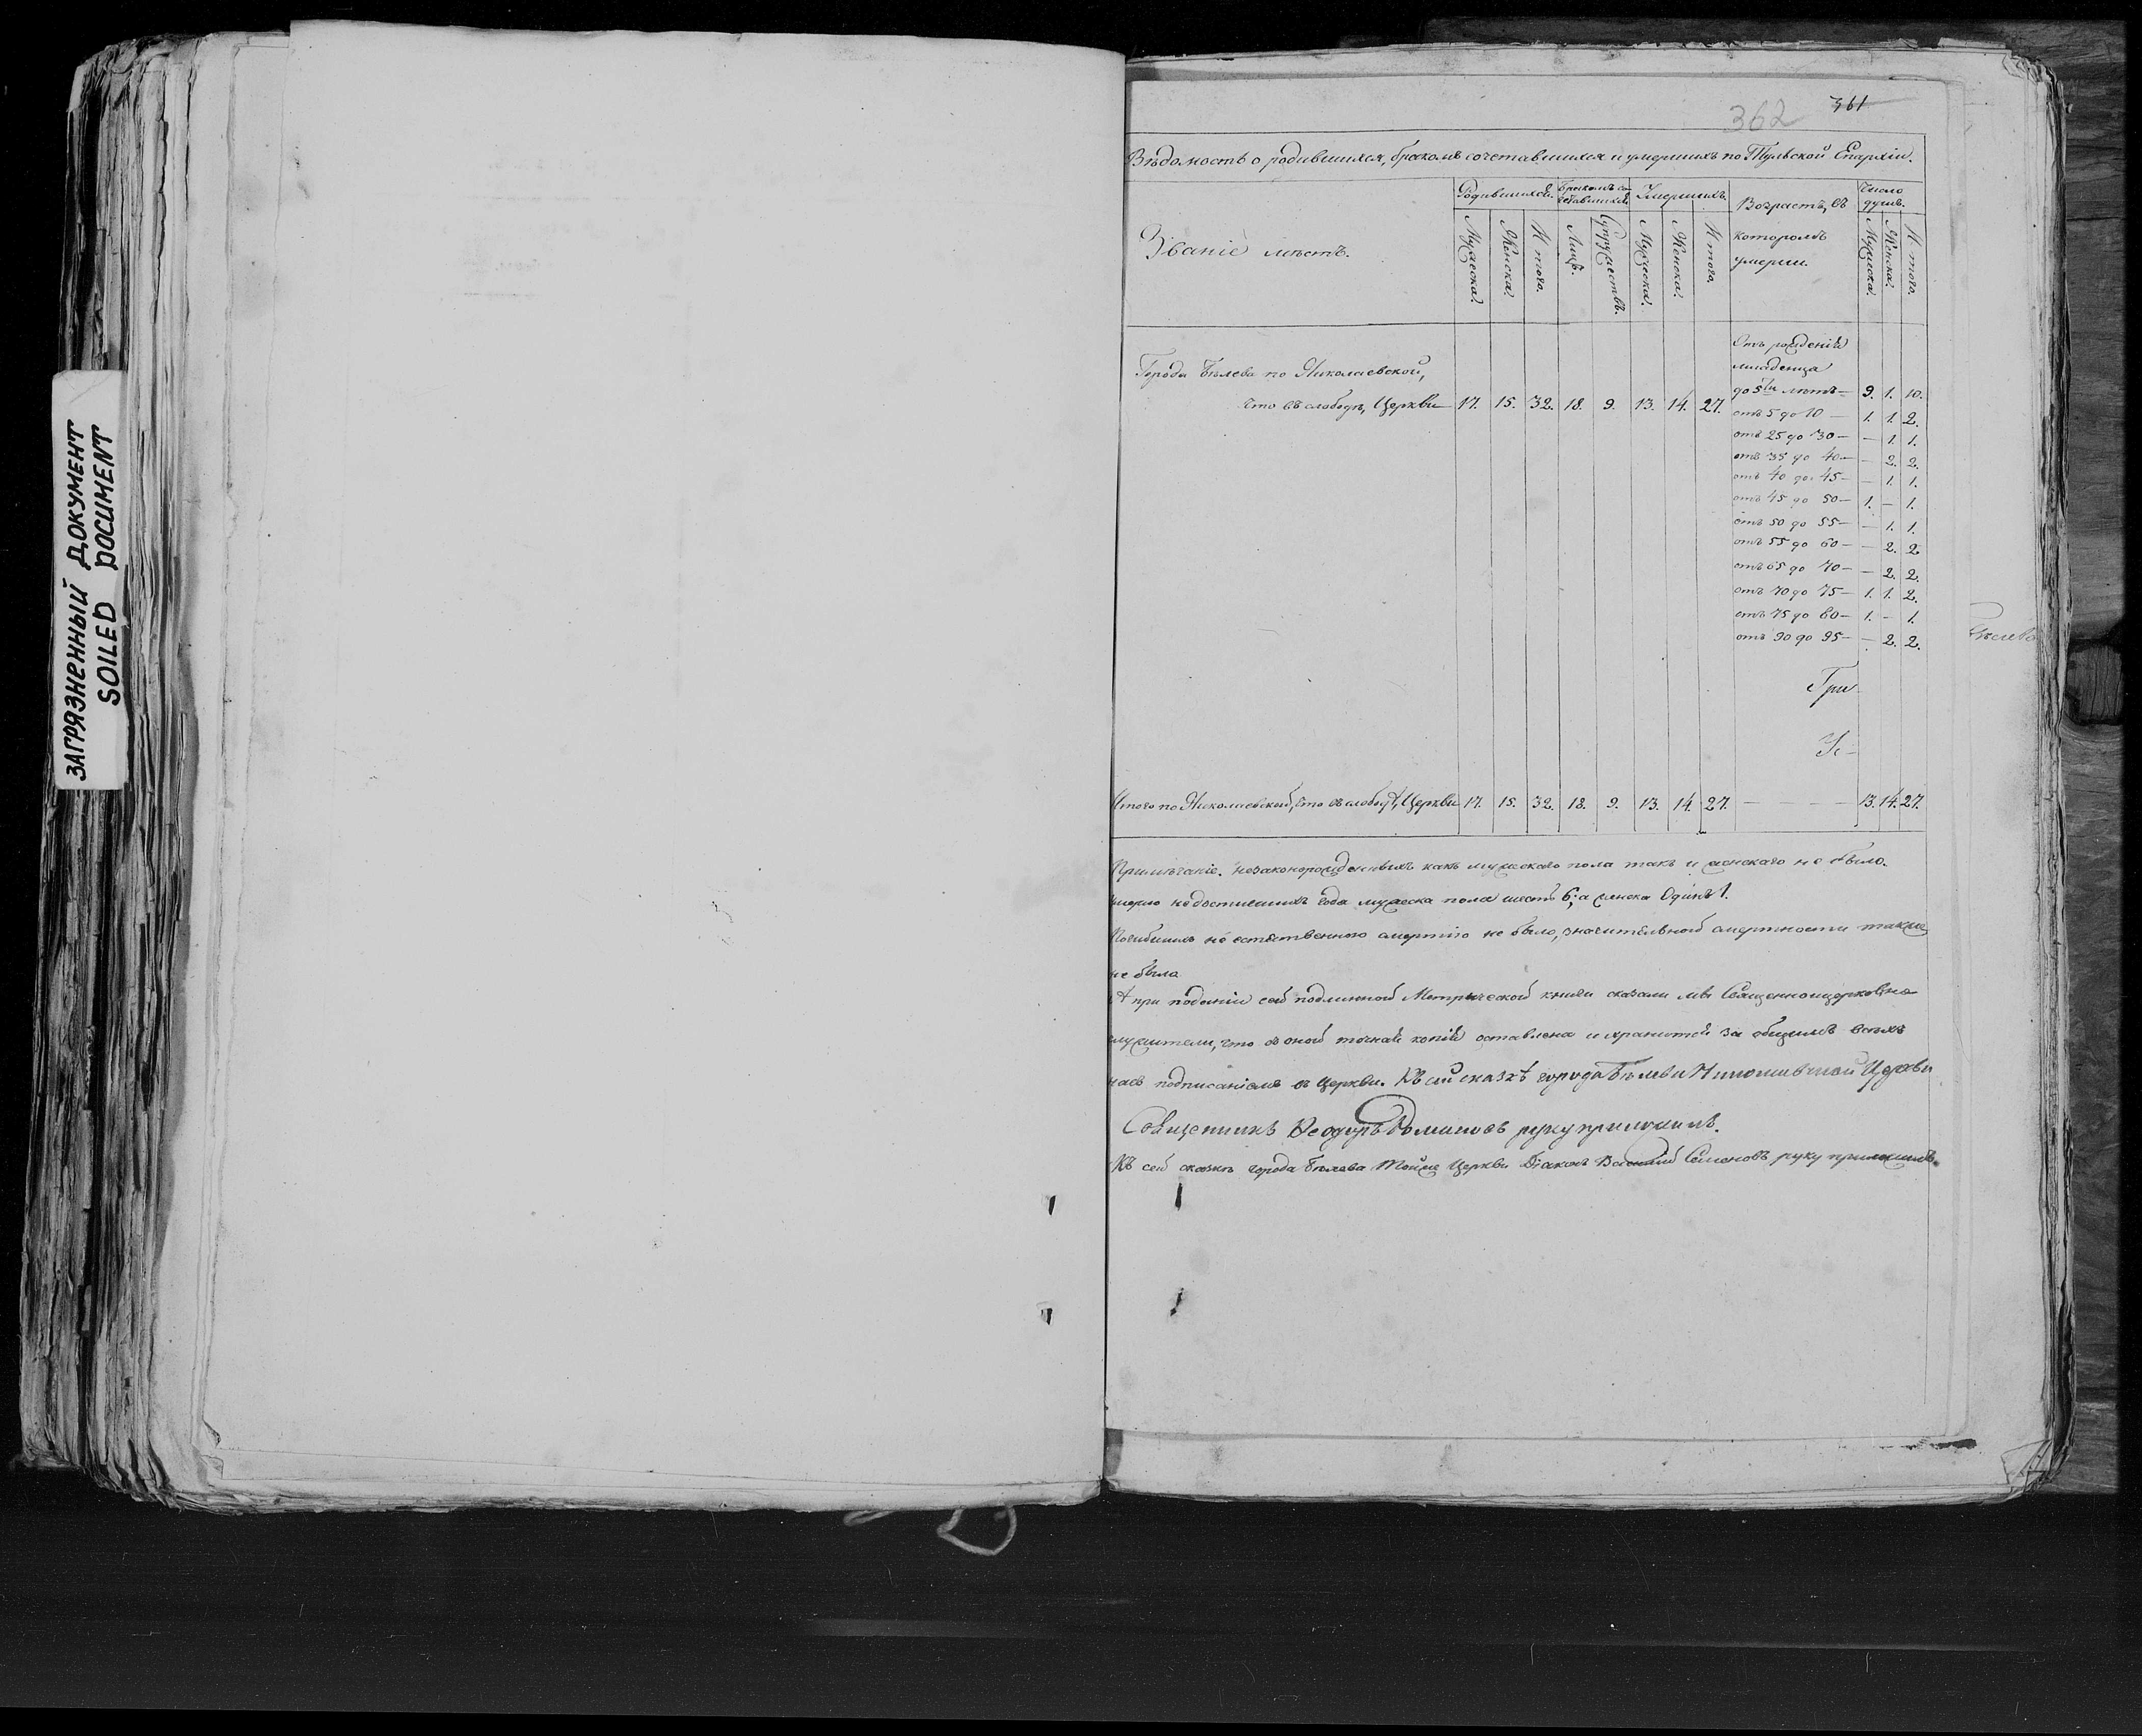 ЗАГРЯЗНЕННЫЙ ДОКУМЕНТ
SOILED DOCUMENT
362 361
Вѣдомость о родившихся, бракомъ сочетавшихся и умершихъ по Тульской Епархіи.
Званіе мѣстъ.
Родившихся. Бракомъ сочетавшихся. Умершихъ. Возрастъ, въ которомъ умерли. Число душъ.
Мужеска. Женска. Итого. Лицъ. Супружествъ. Мужеска. Женска. Итого. Мужеска. Женска. Итого.
Отъ рожденія
младенца
Города Бѣлева по Николаевской,
до 5ти лѣтъ — 9. 1. 10.
что въ слободѣ, Церкви 17. 15. 32. 18. 9. 13. 14. 27.
отъ 5 до 10 — 1. 1. 2.
отъ 25 до 30 — — 1. 1.
отъ 35 до 40 — — 2. 2.
отъ 40 до 45 — — 1. 1.
отъ 45 до 50 — 1. — 1.
отъ 50 до 55 — — 1. 1.
отъ 55 до 60 — — 2. 2.
отъ 65 до 70 — — 2. 2.
отъ 70 до 75 — 1. 1. 2.
отъ 75 до 80 — 1. — 1.
отъ 90 до 95 — — 2. 2.
Гри
Итого по Николаевской, что въ слободѣ, Церкви 17. 15. 32. 18. 9. 13. 14. 27. — — — — 13. 14. 27.
Примѣчаніе. незаконорожденныхъ какъ мужескаго пола такъ и женскаго не было.
умерло недостигшихъ года мужеска пола шесть 6; а женска Одинъ 1.
Погибшихъ не естественною смертію не было, значительной смертности также
не было
А при поданіи сей подлинной Метрической книги сказали мы Священноцерковно
служители, что съ оной точная копія оставлена и хранится за общимъ всѣхъ
насъ подписаніемъ въ Церкви. Къ сей сказкѣ города Бѣлева Николаевской Церкви
Священникъ Ѳеодоръ руку приложилъ.
Къ сей сказкѣ города Бѣлева Тойже Церкви Діаконъ Василій Семеновъ руку приложилъ.